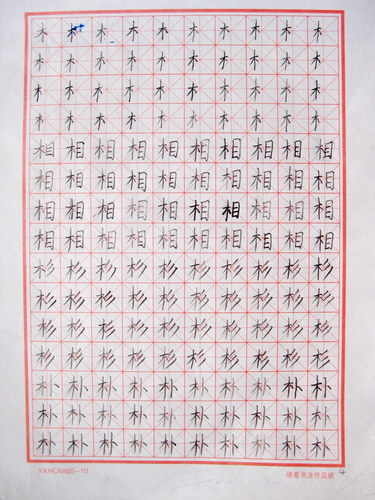 木木木木木木木木木木
木木木木木木木木木木
木木木木木木木木木木
木木木木木木木木木木
相相相相相相相相相相
相相相相相相相相相相
相相相相相相相相相相
相相相相相相相相相相
杉杉杉杉杉杉杉杉杉杉
杉杉杉杉杉杉杉杉杉杉
杉杉杉杉杉杉杉杉杉杉
杉杉杉杉杉杉杉杉杉杉
朴朴朴朴朴朴朴朴朴朴
朴朴朴朴朴朴朴朴朴朴
朴朴朴朴朴朴朴朴朴朴
YXHC6865-10 硬笔书法作品纸 4